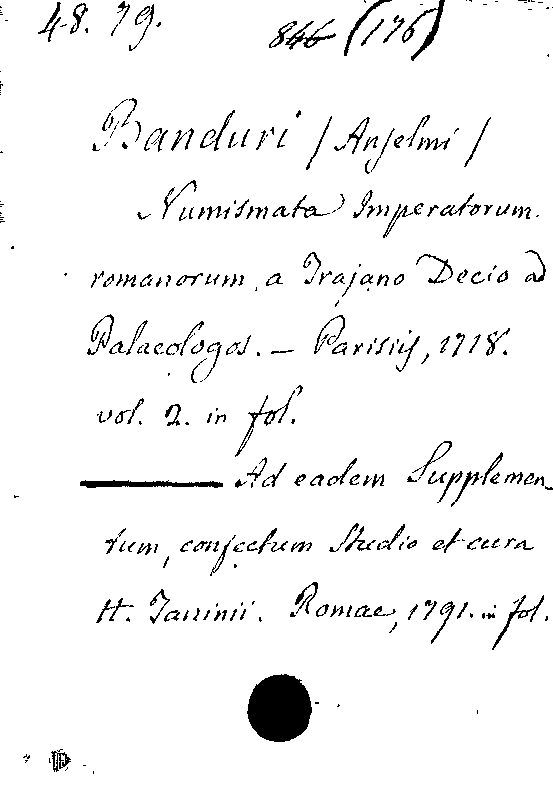 48. 79.
846 (176)
Banduri / Anselmi /
Numismata Imperatorum
romanorum, a Trajano Decio ad
Palaeologos. — Parisiis, 1718.
vol. 2. in fol.
——— Ad eadem Supplemen-
tum, confectum Studio et cura
H. Taninii. Romae, 1791. in fol.